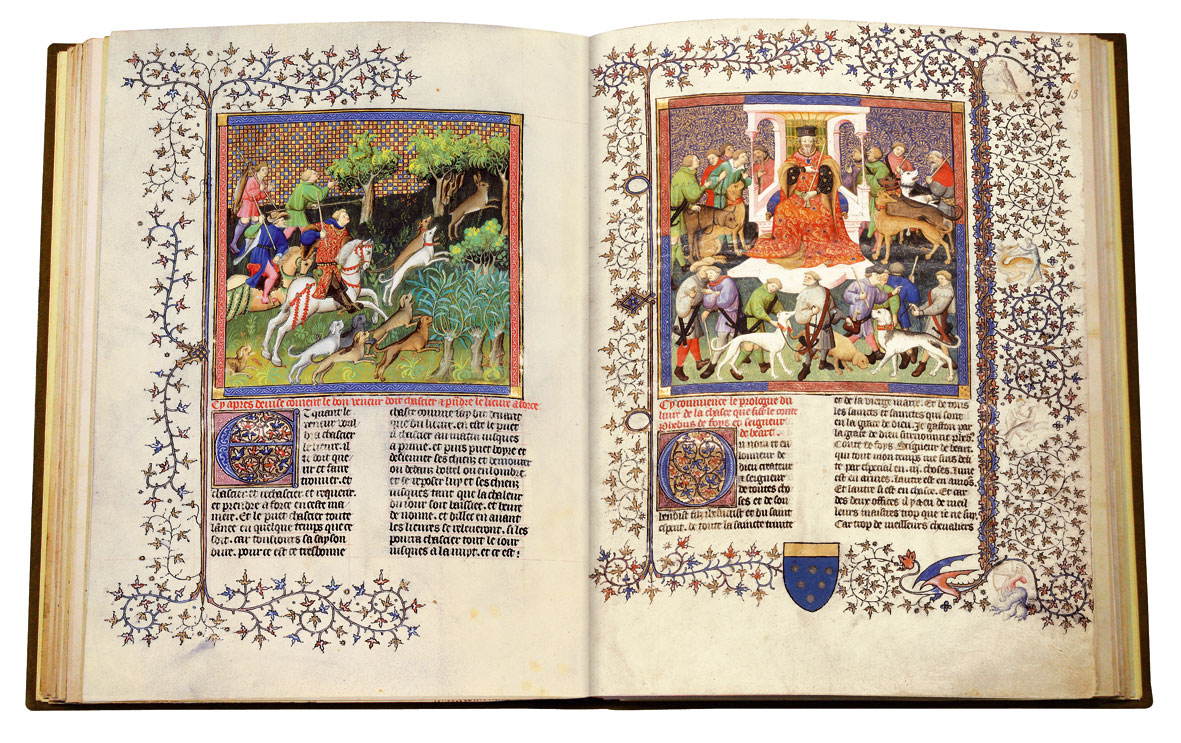 Cy apres devise coment le bon veneur doit chascier et pndre le lievre a force
Et quant le
veneur voul
dra chascier
le lievre. il
le doit que
rir et faire
chascier. et rechascier et requerir.
et prendre a force en ceste ma
niere. Et le puet chascier toute
lance en quelque temps que ce
soit. car tousiours sa sayson
dure. pour ce est ce tresbonne
chasse comme iay dit devant
que du lievre. en este le puet
chascier au matin iusques
a prime. et puis puet boyre et
desiuner ses chiens et demourer
ou dedans hostel ou en lombre.
et se reposer luy et ses chiens
iusques tant que la chaleur
du iour soit baissiee. et leure
de nonne. et dillec en avant
les lievres se releveront. si les
pourra chascier tout le iour
iusques a la nuyt. et ce est:
13
Cy commence le prologue du
livre de la chasse que fist le conte
Phebus de foys et seigneur
de beart.
u nom et en
lonneur de
dieu createur
et seigneur
de toutes cho
ses et de son
benoist filz ihucrist et du saint
esperit. de toute la saincte trinite
et de la vierge marie. et de tous
les saincts et sainctes qui sont
en la grace de dieu. Je gaston par
la grace de dieu surnomme pheb'.
Conte de foys. Seigneur de beart.
qui tout mon temps me suis deli
te par especial en .iij. choses. lune
est en armes. lautre est en amours
Et lautre si est en chasse. Et car
des deux offices il y a eu de meil
leurs maistres trop que ie ne suy.
Car trop de meilleurs chevaliers